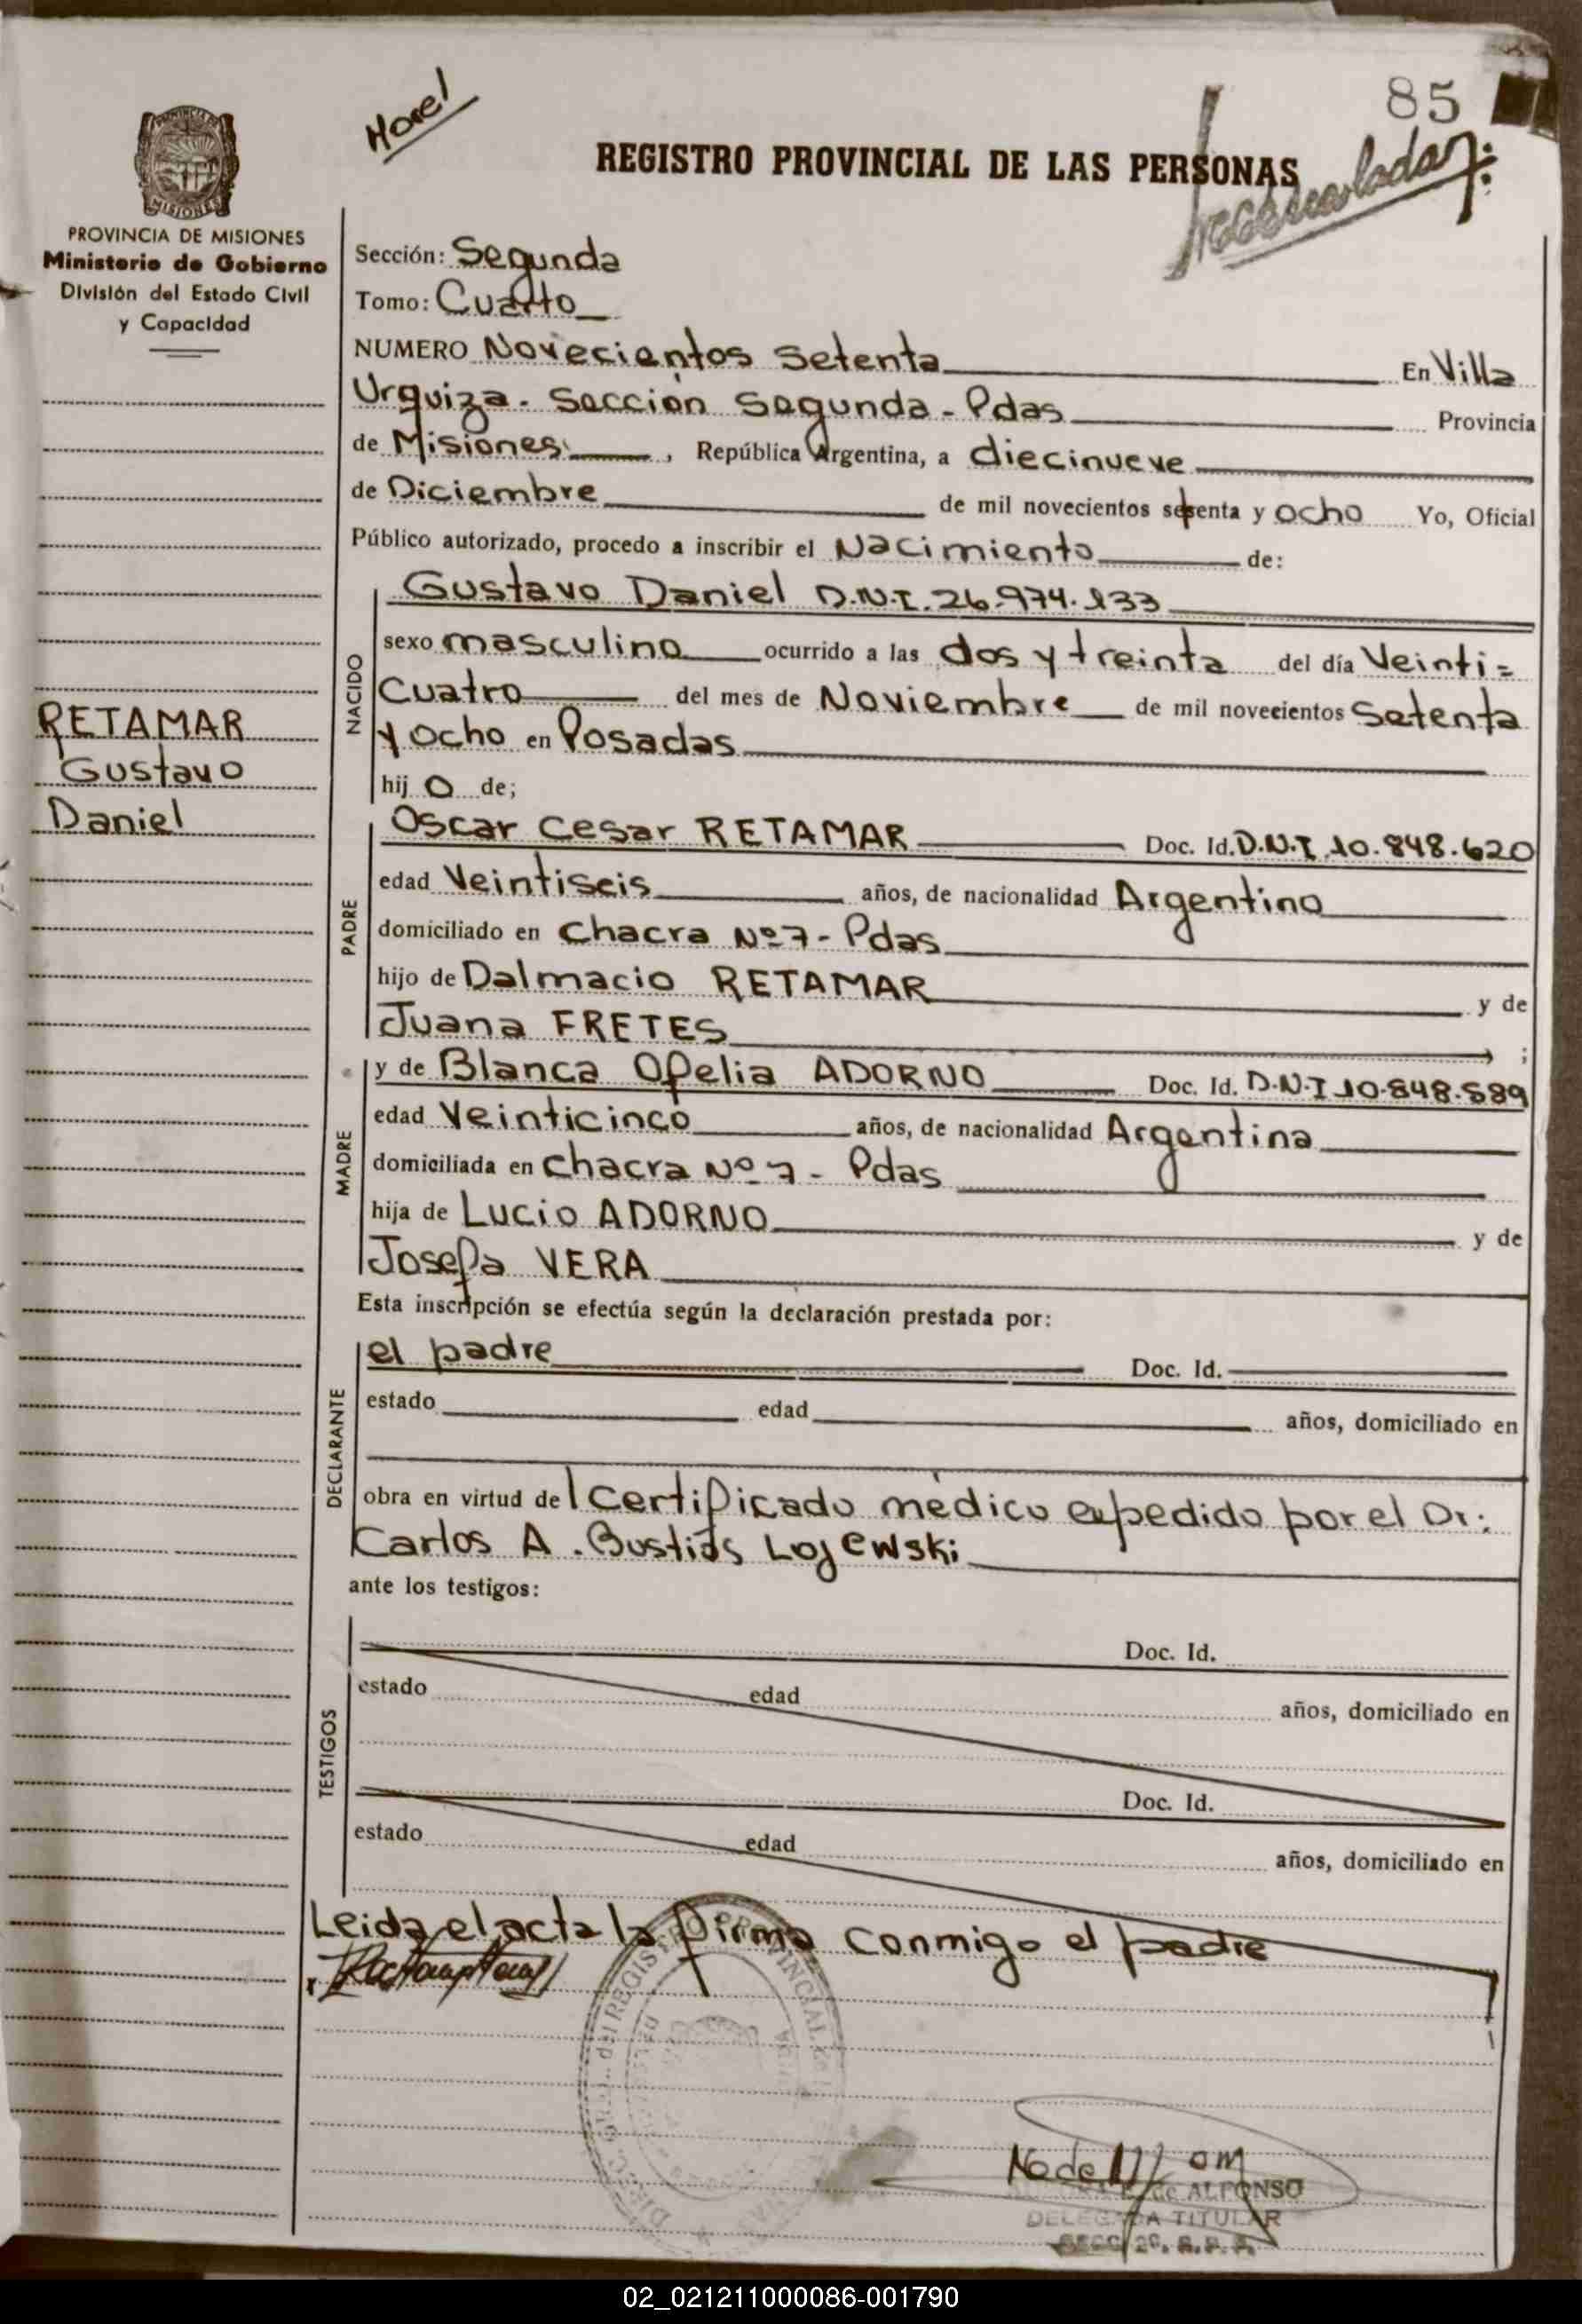 Morel
85
REGISTRO PROVINCIAL DE LAS PERSONAS
PROVINCIA DE MISIONES
Ministerio de Gobierno
División del Estado Civil
y Capacidad
Sección: Segunda
Tomo: Cuarto
NUMERO Novecientos Setenta En Villa
Urquiza. Sección Segunda - Pdas Provincia
de Misiones, República Argentina, a diecinueve
de Diciembre de mil novecientos setenta y ocho Yo, Oficial
Público autorizado, procedo a inscribir el Nacimiento de:
Gustavo Daniel D.N.I. 26.974.133
NACIDO
sexo masculino ocurrido a las dos y treinta del día Veinti=
Cuatro del mes de Noviembre de mil novecientos Setenta
y Ocho en Posadas
hij o de;
RETAMAR
Gustavo
Daniel
PADRE
Oscar Cesar RETAMAR Doc. Id. D.N.I 10.848.620
edad Veintiseis años, de nacionalidad Argentino
domiciliado en Chacra Nº 7 - Pdas
hijo de Dalmacio RETAMAR y de
Juana FRETES ;
MADRE
y de Blanca Ofelia ADORNO Doc. Id. D.N.I 10.848.589
edad Veinticinco años, de nacionalidad Argentina
domiciliada en Chacra Nº 7 - Pdas
hija de Lucio ADORNO y de
Josefa VERA
Esta inscripción se efectúa según la declaración prestada por:
DECLARANTE
el padre Doc. Id.
estado edad años, domiciliado en
obra en virtud del Certificado médico expedido por el Dr:
Carlos A. Bustias Lojewski
ante los testigos:
TESTIGOS
Doc. Id.
estado edad años, domiciliado en
Doc. Id.
estado edad años, domiciliado en
Leida el acta la firma conmigo el padre
de ALFONSO
DELEGADA TITULAR
SECC 2º. R.P.P.
02_021211000086-001790